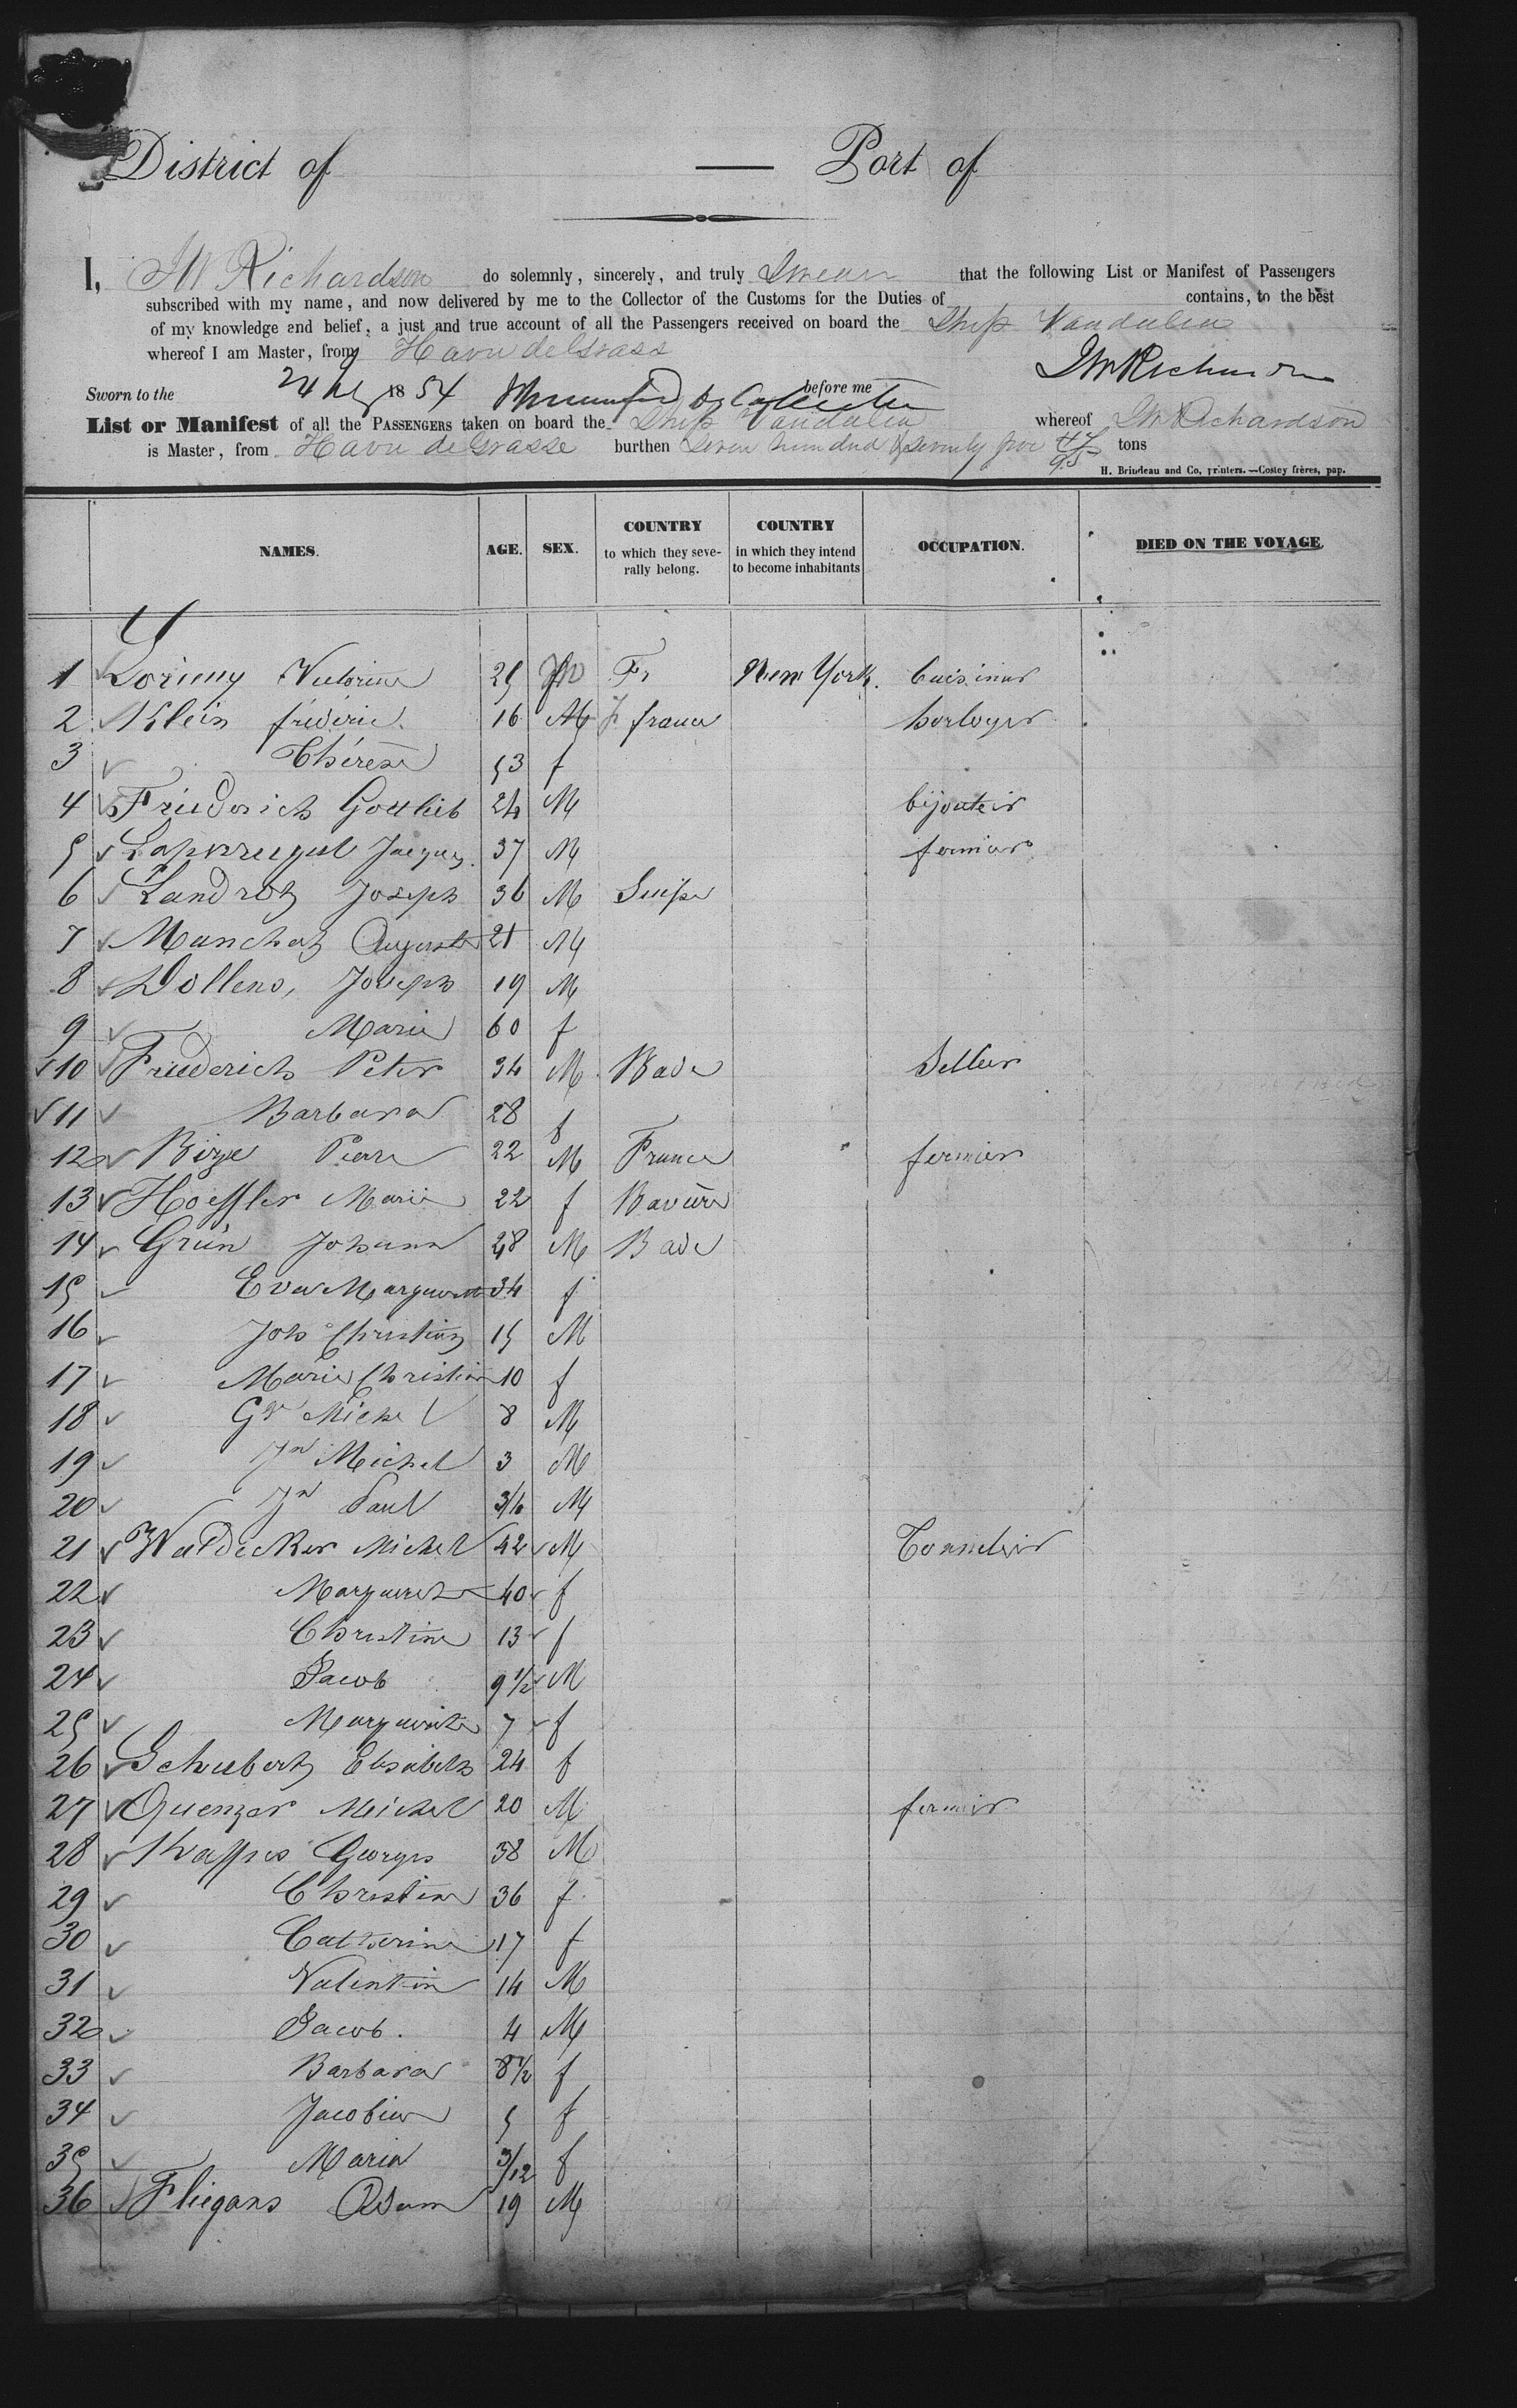 District of — Port of
I, JW Richardson do solemnly, sincerely, and truly Swear that the following List or Manifest of Passengers
subscribed with my name, and now delivered by me to the Collector of the Customs for the Duties of contains, to the best
of my knowledge and belief, a just and true account of all the Passengers received on board the Ship Vandalia
whereof I am Master, from Havre de Grass
JW Richardson
Sworn to the 24 1854 before me
List or Manifest of all the PASSENGERS taken on board the Ship Vandalia whereof JW Richardson
is Master, from Havre de Grasse burthen Seven hundred & seventy five tons
H. Brindeau and Co, printers. — Costey frères, pap.
NAMES. AGE. SEX. COUNTRY to which they severally belong. COUNTRY in which they intend to become inhabitants OCCUPATION. DIED ON THE VOYAGE.
1 Victorine 25 Fr New York. Cuisinier
2 Klein fréderic 16 M france horloger
3 Thérese 53 f
4 Friederich Gottlieb 24 M bijoutier
5 Jacques 37 M fermier
6 Landrot Joseph 36 M Suisse
7 Manchat Auguste 21 M
8 Dollens, Joseph 19 M
9 Marie 60 f
10 Friederich Peter 34 M Bade Sellier
11 Barbara 28 f
12 Bize Pierre 22 M France fermier
13 Hoeffler Marie 22 f Baviere
14 Grün Johann 48 M Bade
15 Eva Marguerite 34 f
16 Joh Christian 15 M
17 Marie Christine 10 f
18 Gg Michel 8 M
19 Jn Michel 3 M
20 Jn Paul 3/6 M
21 Waldecker Michel 42 M Tonnelier
22 Marguerite 40 f
23 Christine 13 f
24 Jacob 9 1/2 M
25 Marguerite 7 f
26 Schubert Elisabeth 24 f
27 Quenzer Michel 20 M fermier
28 Kappes Georges 38 M
29 Christine 36 f
30 Catherine 17 f
31 Valentin 14 M
32 Jacob. 4 M
33 Barbara 8 1/2 f
34 Jacobine 5 f
35 Maria 3/12 f
36 Fliegans Adam 19 M